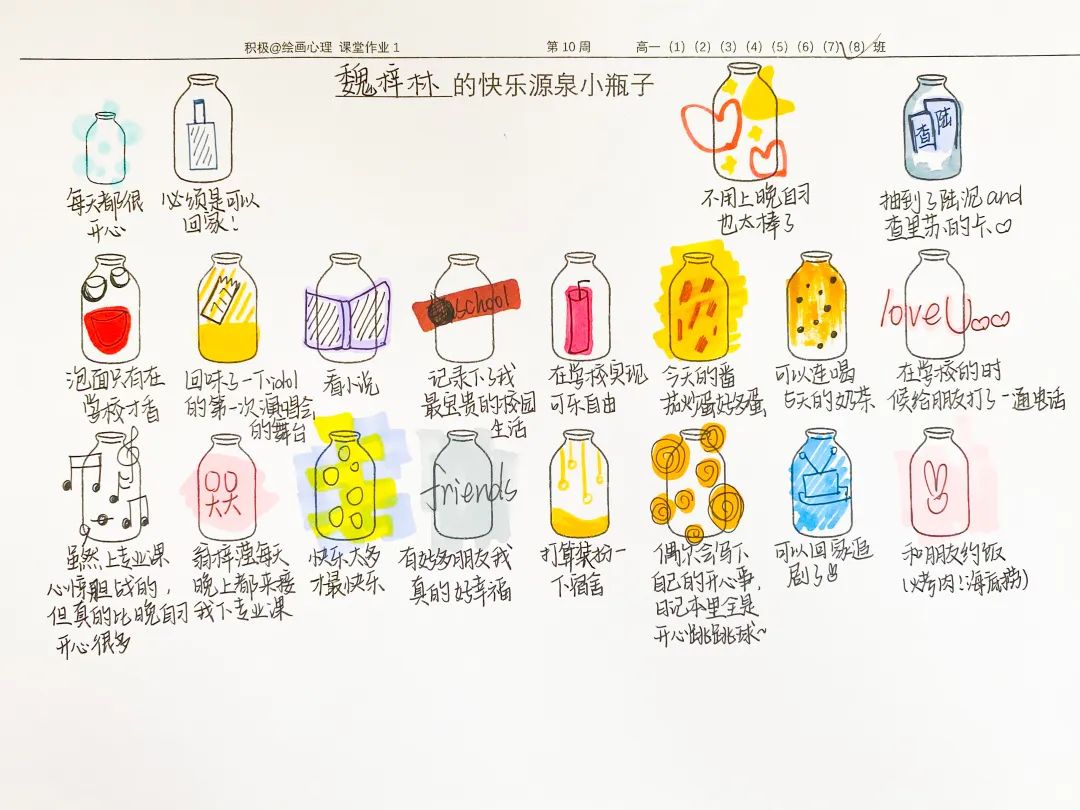 积极@绘画心理 课堂作业 1 第 10 周 高一 (1) (2) (3) (4) (5) (6) (7) (8) 班
魏梓林 的快乐源泉小瓶子
每天都很
开心
必须是可以
回家!
不用上晚自习
也太棒了
查 陆
抽到了陆沉and
查里苏的卡♡
school
loveU
泡面只有在
学校才香
回味了一下idol
的第一次演唱会
的舞台
看小说
记录下了我
最宝贵的校园
生活
在学校实现
可乐自由
今天的番
茄炒蛋好多蛋
可以连喝
5天的奶茶
在学校的时
候给朋友打了一通电话
friends
虽然上专业课
心惊胆战的,
但真的比晚自习
开心很多
翁梓滢每天
晚上都来接
我下专业课
快乐大多
才最快乐
有好多朋友我
真的好幸福
打算装扮一
下宿舍
偶尔会写下
自己的开心事,
日记本里全是
开心跳跳球~
可以回家追
剧了
和朋友约饭
(烤肉!海底捞)